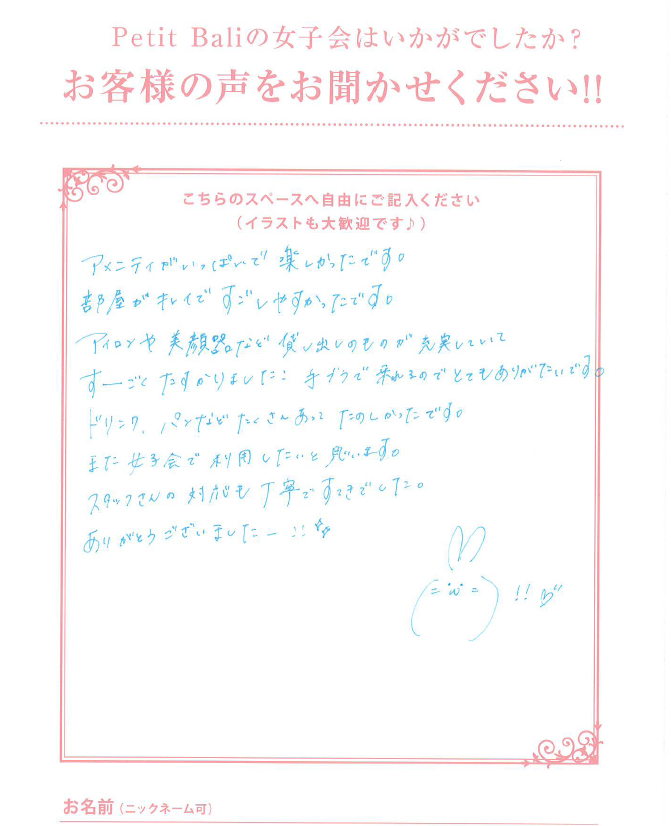 Petit Baliの女子会はいかがでしたか?
お客様の声をお聞かせください!!
こちらのスペースへ自由にご記入ください
(イラストも大歓迎です♪)
アメニティがいっぱいで 楽しかったです。
部屋がキレイで すごしやすかったです。
アイロンや 美顔器など 貸し出しのものが 充実していて
すーごく たすかりました! 手ブラで来れるので とてもありがたいです。
ドリンク、パンなど たくさんあって たのしかったです。
また 女子会で 利用したいと 思います。
スタッフさんの 対応も 丁寧で すてきでした。
ありがとうございましたー !!
!!
お名前(ニックネーム可)